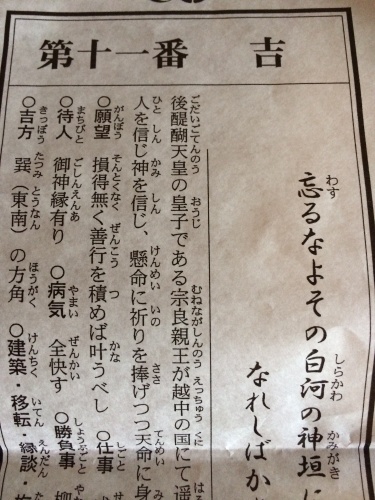 第十一番 吉
忘るなよその白河の神垣に
なれしばか
後醍醐天皇の皇子である宗良親王が越中の国にて遥
人を信じ神を信じ、懸命に祈りを捧げつつ天命に身
○願望 損得無く善行を積めば叶うべし ○仕事
○待人 御神縁有り ○病気 全快す ○勝負事
○吉方 巽（東南）の方角 ○建築・移転・縁談・